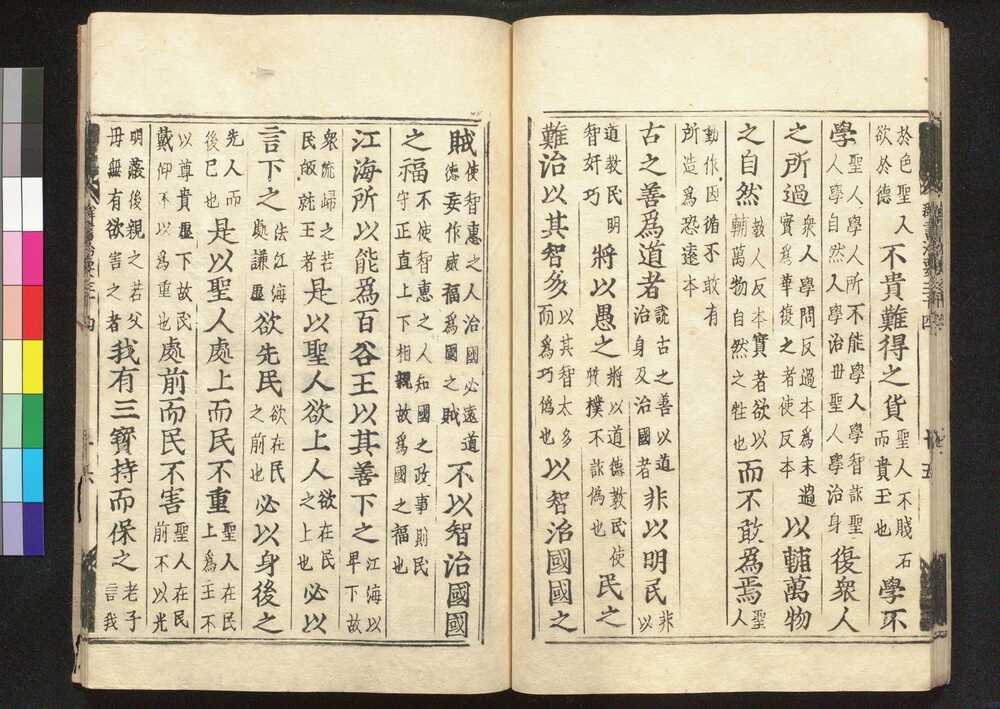 於色聖人欲於德不貴難得之貨聖人不賤石而貴玉也學不
學聖人學人所不能學人學智詐聖人學自然人學治世聖人學治身復衆人
之所過衆人學問反過本爲末過實爲華復之者使反本以輔萬物
之自然教人反本實者欲以輔萬物自然之性也而不敢爲焉聖人
動作因循不敢有所造爲恐遠本
古之善爲道者說古之善以道治身及治國者非以明民非以
道教民明智奸巧將以愚之將以道德教民使質樸不詐僞也民之
難治以其智多以其智太多而爲巧僞也以智治國國之
賊使智惠之人治國必遠道德妄作威福爲國之賊不以智治國國
之福不使智惠之人知國之政事則民守正直上下相親故爲國之福也
江海所以能爲百谷王以其善下之江海以卑下故
衆流歸之若民皈就王者是以聖人欲上人欲在民之上也必以
言下之法江海處謙虛欲先民欲在民之前也必以身後之
先人而後己也是以聖人處上而民不重聖人在民上爲主不
以尊貴虛下故民戴仰不以爲重也處前而民不害聖人在民前不以光
明蔽後親之若父母無有欲害之者我有三寶持而保之老子言我